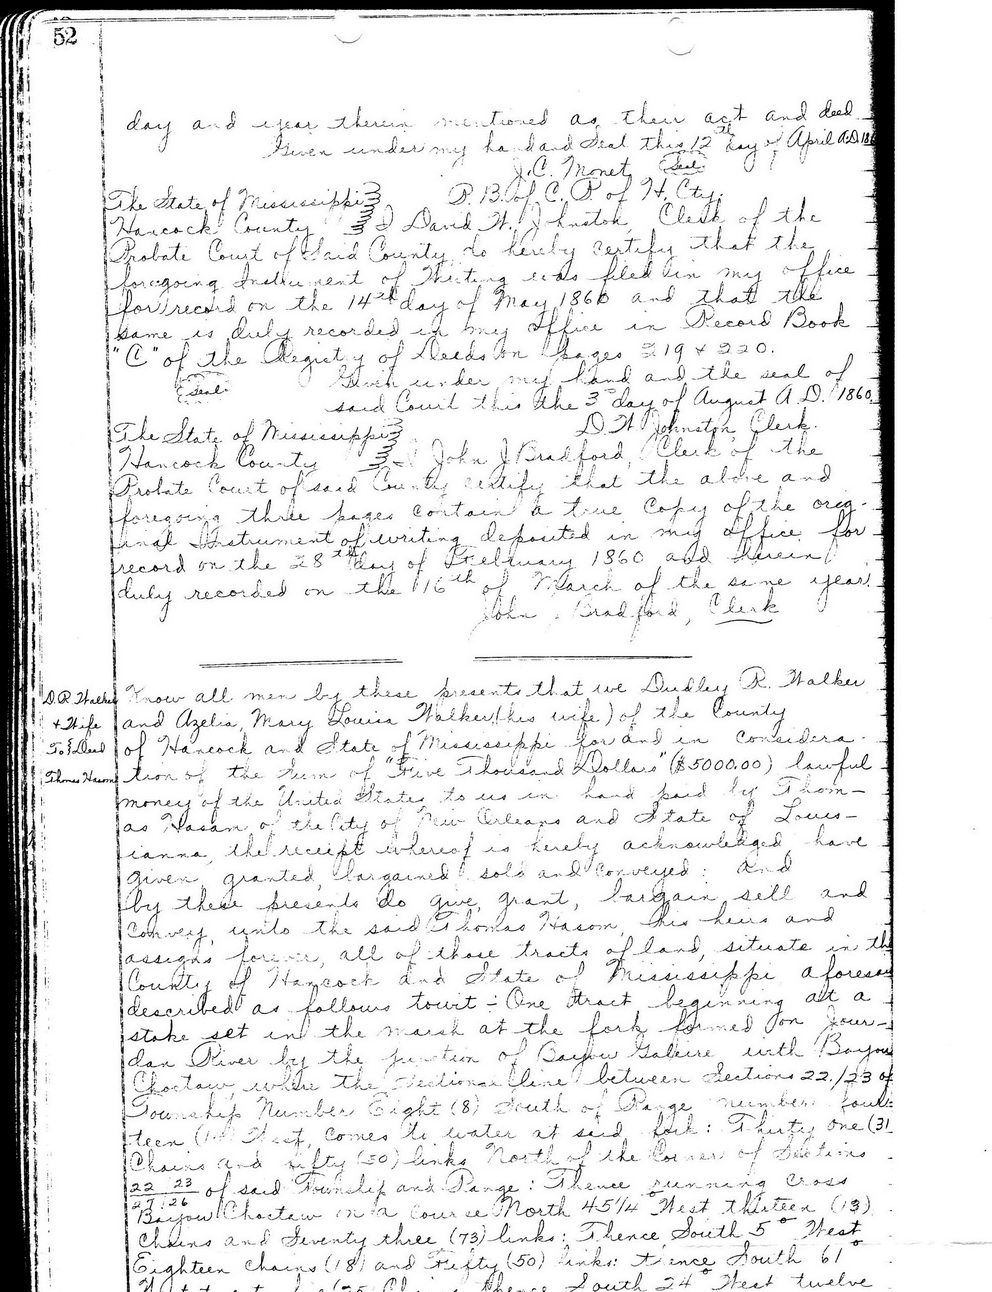 52
day and year therein mentioned as their act and deed
Given under my hand and Seal this 12th day of April A.D. 186
J.C. Monet Seal
P.B. of C.P. of H. Cty.
The State of Mississippi
Hancock County I David W. Johnston, Clerk of the
Probate Court of Said County do hereby certify that the
foregoing Instrument of Writing was filed in my office
for record on the 14th day of May 1860 and that the
same is duly recorded in my office in Record Book
"C" of the Registry of Deeds on pages 219 & 220.
Given under my hand and the seal of
Seal said Court this the 3rd day of August A.D. 1860.
D.W. Johnston, Clerk.
The State of Mississippi
Hancock County I John J Bradford, Clerk of the
Probate Court of said County certify that the above and
foregoing three pages contain a true Copy of the orig-
inal Instrument of writing deposited in my office for
record on the 28th day of February 1860 and herein
duly recorded on the 16th of March of the same year.
John Bradford, Clerk
D.R. Walker
& Wife
To } Deed
Thomas Hasam
Know all men by these presents that we Dudley R. Walker
and Azelia, Mary Louisa Walker (his wife) of the County
of Hancock and State of Mississippi for and in considera-
tion of the sum of "Five Thousand Dollars" ($5000.00) lawful
money of the United States to us in hand paid by Thom-
as Hasam of the City of New Orleans and State of Louis-
ianna, the receipt whereof is hereby acknowledged, have
given, granted, bargained, sold and conveyed: and
by these presents do give, grant, bargain sell and
convey, unto the said Thomas Hasom, his heirs and
assigns forever, all of those tracts of land, situate in the
County of Hancock and State of Mississippi aforesa
described as follows towit:- One tract beginning at a
stake set in the marsh at the fork formed on Jour-
dan River by the junction of Bayou with Bayou
Choctaw, where the sectional line between Sections 22/23 of
Township Number Eight (8) South of Range number four-
teen (14) West, comes to water at said fork: Thirty one (31
Chains and fifty (50) links North of the Corner of Sections
22 23
27 26 of said Township and Range: Thence running cross
Bayou Choctaw in a course North 45 1/4 West thirteen (13)
Chains and Seventy three (73) links: Thence South 5° West
Eighteen chains (18) and Fifty (50) links: thence South 61°
West (25) Chains thence South 24° West twelve